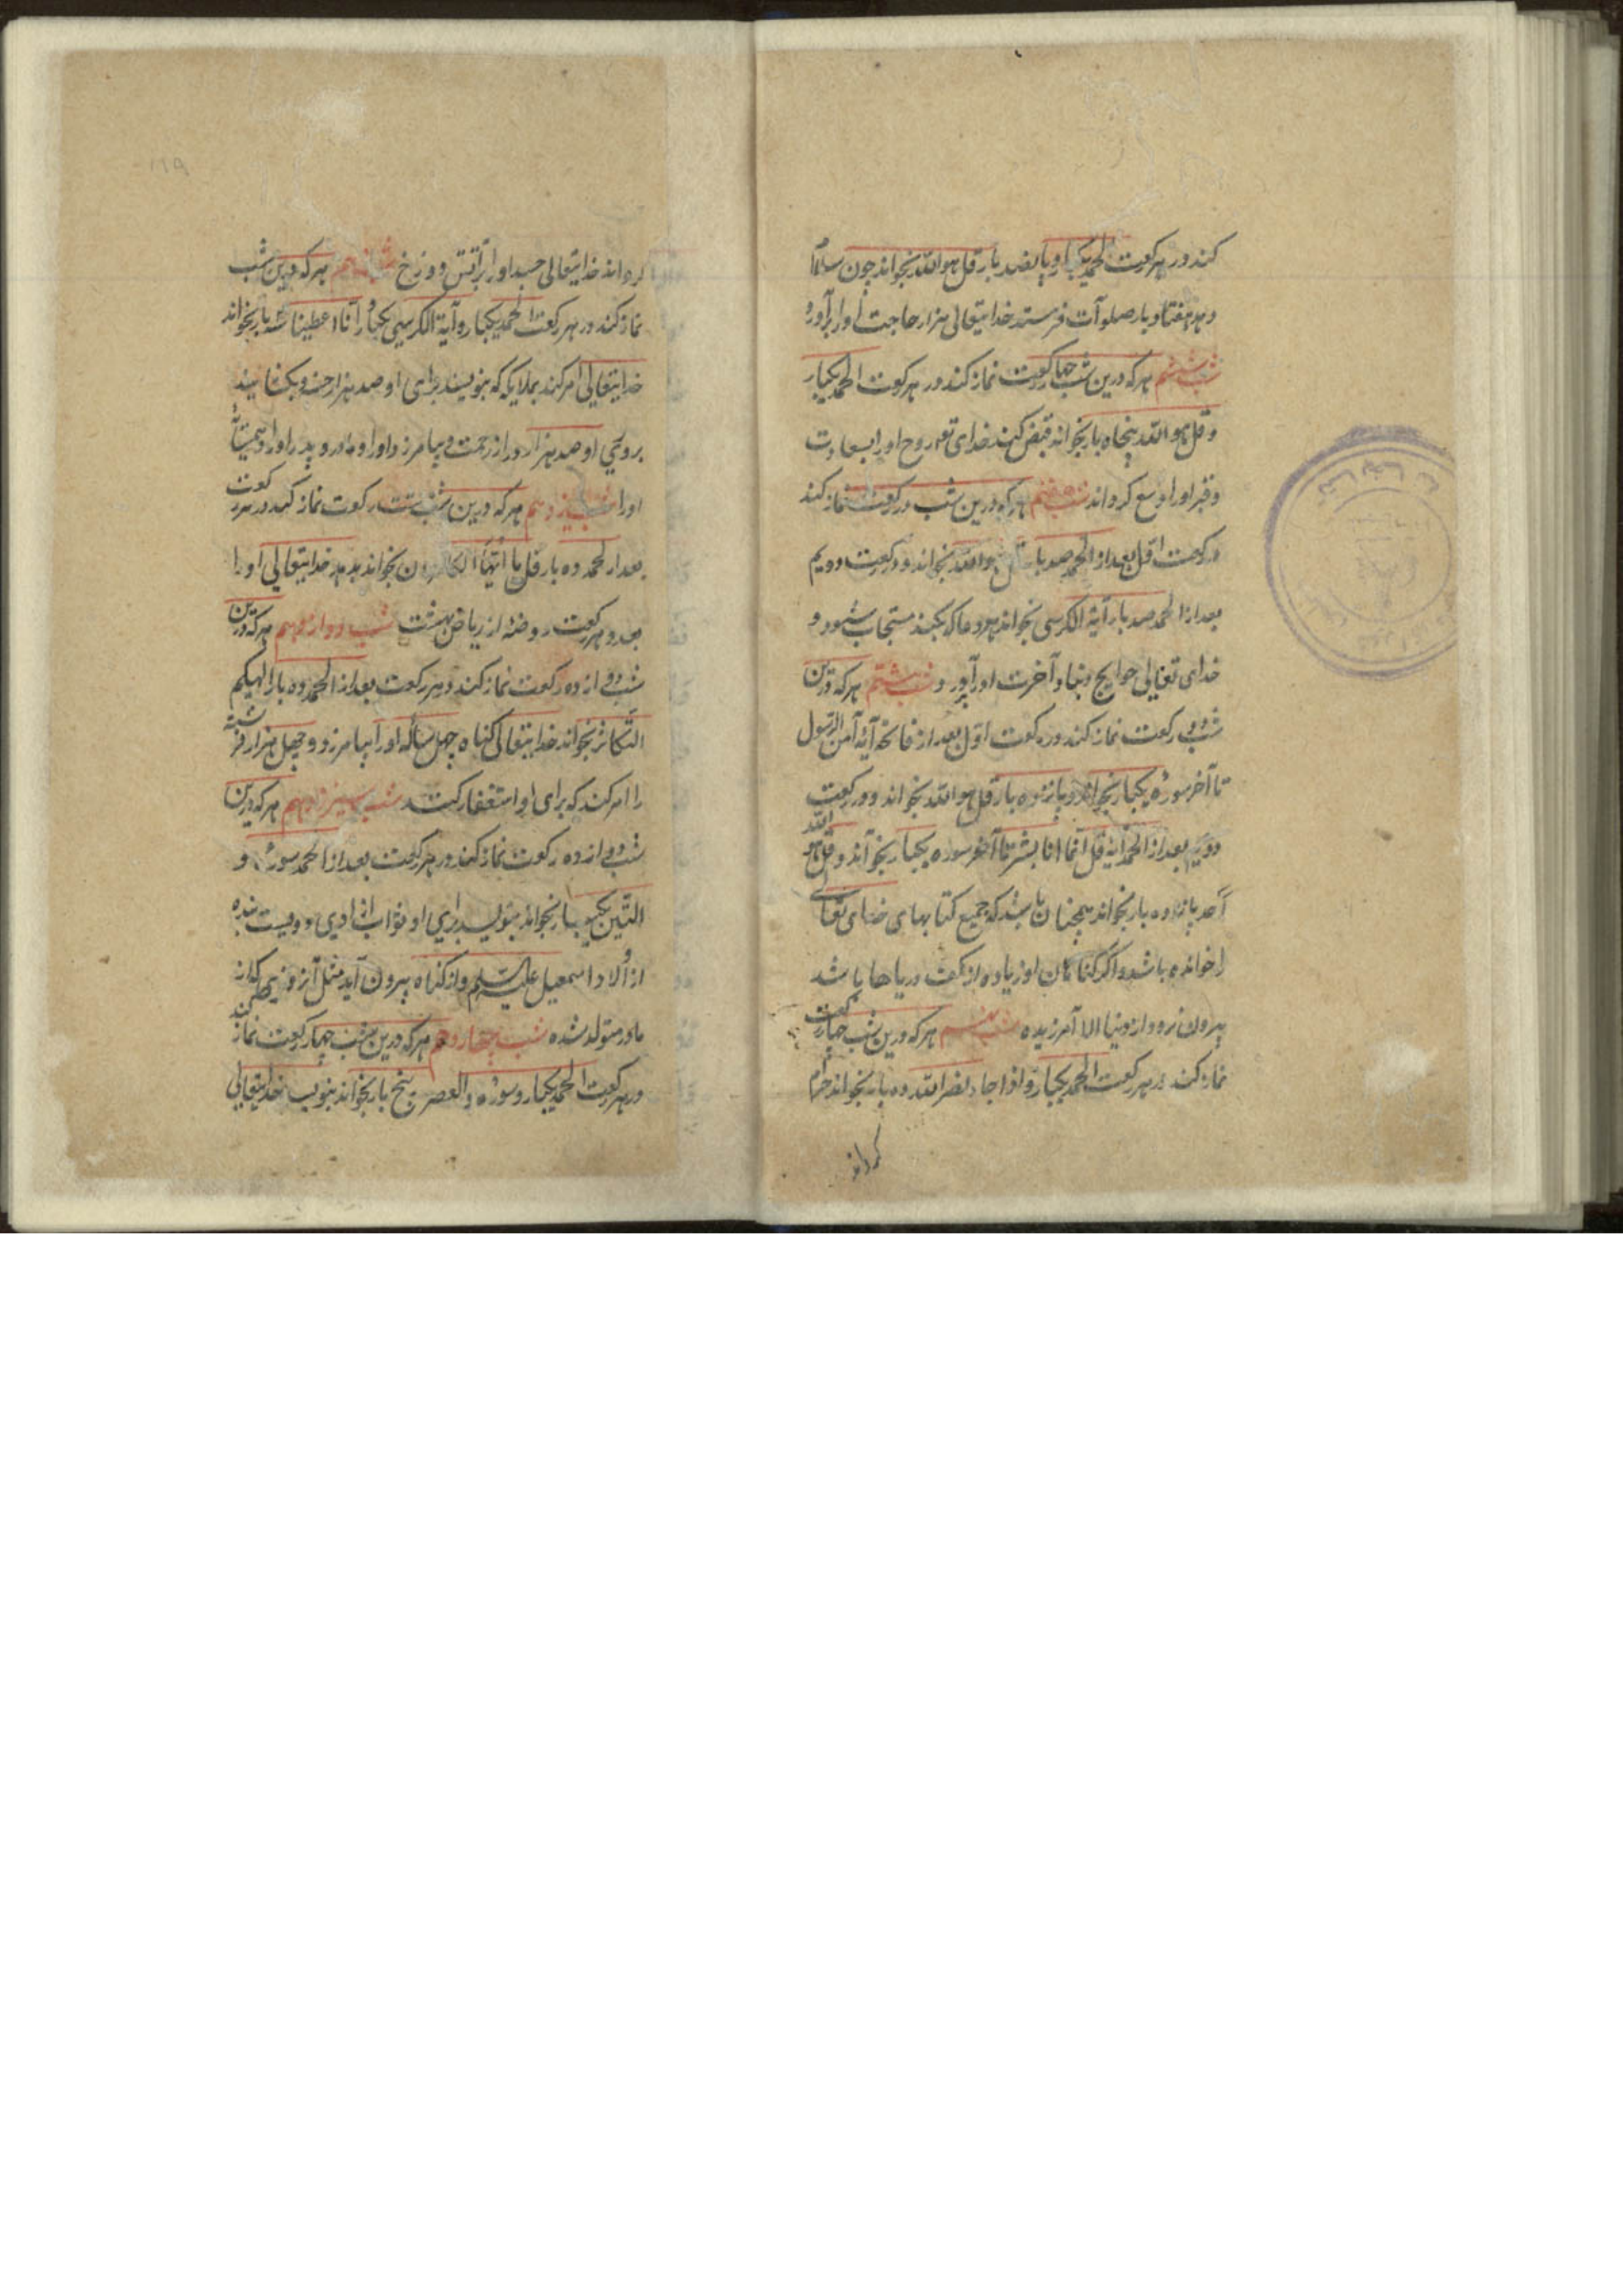 کند در هر رکعت الحمد یکبار و پانصد بار قل هو الله بخواند چون سلام
دهد هفتاد بار صلوات فرستد خدایتعالی هزار حاجت او را برآورد
شب ششم هر که درین شب چهار رکعت نماز کند در هر رکعت الحمد یکبار
و قل هو الله پنجاه بار بخواند قبض کند خدای تع روح او را بسعادت
و قبر او را وسع گرداند شب هفتم هر که درین شب دو رکعت نماز کند
در رکعت اول بعد از الحمد صد بار قل هو الله بخواند و در رکعت دویم
بعد از الحمد صد بار آیة الکرسی بخواند هر دعا که بکند مستجاب شود و
خدای تعالی حوایج دنیا و آخرت او برآورد شب هشتم هر که درین
شب دو رکعت نماز کند در رکعت اول بعد از فاتحه آیه آمن الرسول
تا آخر سوره یکبار بخواند و پانزده بار قل هو الله بخواند و در رکعت
دویم بعد از الحمد آیه قل انما انا بشر تا آخر سوره یکبار بخواند و قل هو الله
احد پانزده بار بخواند همچنان باشد که جمیع کتابهای خدای تعالی
را خوانده باشد و اگر گناهان او زیاده از کف دریاها باشد
بیرون نرود از دنیا الا آمرزیده شب نهم هر که درین شب چهار رکعت
نماز کند در هر رکعت الحمد یکبار و اذا جاء نصر الله ده بار بخواند حرام
گرداند
گرداند خدایتعالی جسد او را بر آتش دوزخ شب دهم هر که درین شب
نماز کند در هر رکعت الحمد یکبار و آیة الکرسی یکبار انا اعطینا سه بار بخواند
خدایتعالی امر کند بملایکه که بنویسند برای او صد هزار حسنه و بکشایند
بروی او صد هزار در از رحمت و بیامرزد او را و مادر و پدر او را و همسایهٔ
او را شب یازدهم هر که درین شب هشت رکعت نماز کند در هر رکعت
بعد از الحمد ده بار قل یا ایها الکافرون بخواند بدهد خدایتعالی او را
بعدد هر رکعت روضهٔ از ریاض بهشت شب دوازدهم هر که درین
شب دوازده رکعت نماز کند در هر رکعت بعد از الحمد ده بار الهیکم
التکاثر بخواند خدایتعالی گناه چهل ساله او را بیامرزد و چهل هزار فرشته
را امر کند که برای او استغفار کنند شب سیزدهم هر که درین
شب دوازده رکعت نماز کند در هر رکعت بعد از الحمد سوره و
التین یکبار بخواند بنویسد برای او ثواب آزادی دویست بنده
از اولاد اسمعیل علیه السلم و از گناه بیرون آید مثل آنروزی که از
مادر متولد شده شب چهاردهم هر که درین شب چهار رکعت نماز کند
در هر رکعت الحمد یکبار و سوره والعصر پنج بار بخواند بنویسد خدایتعالی